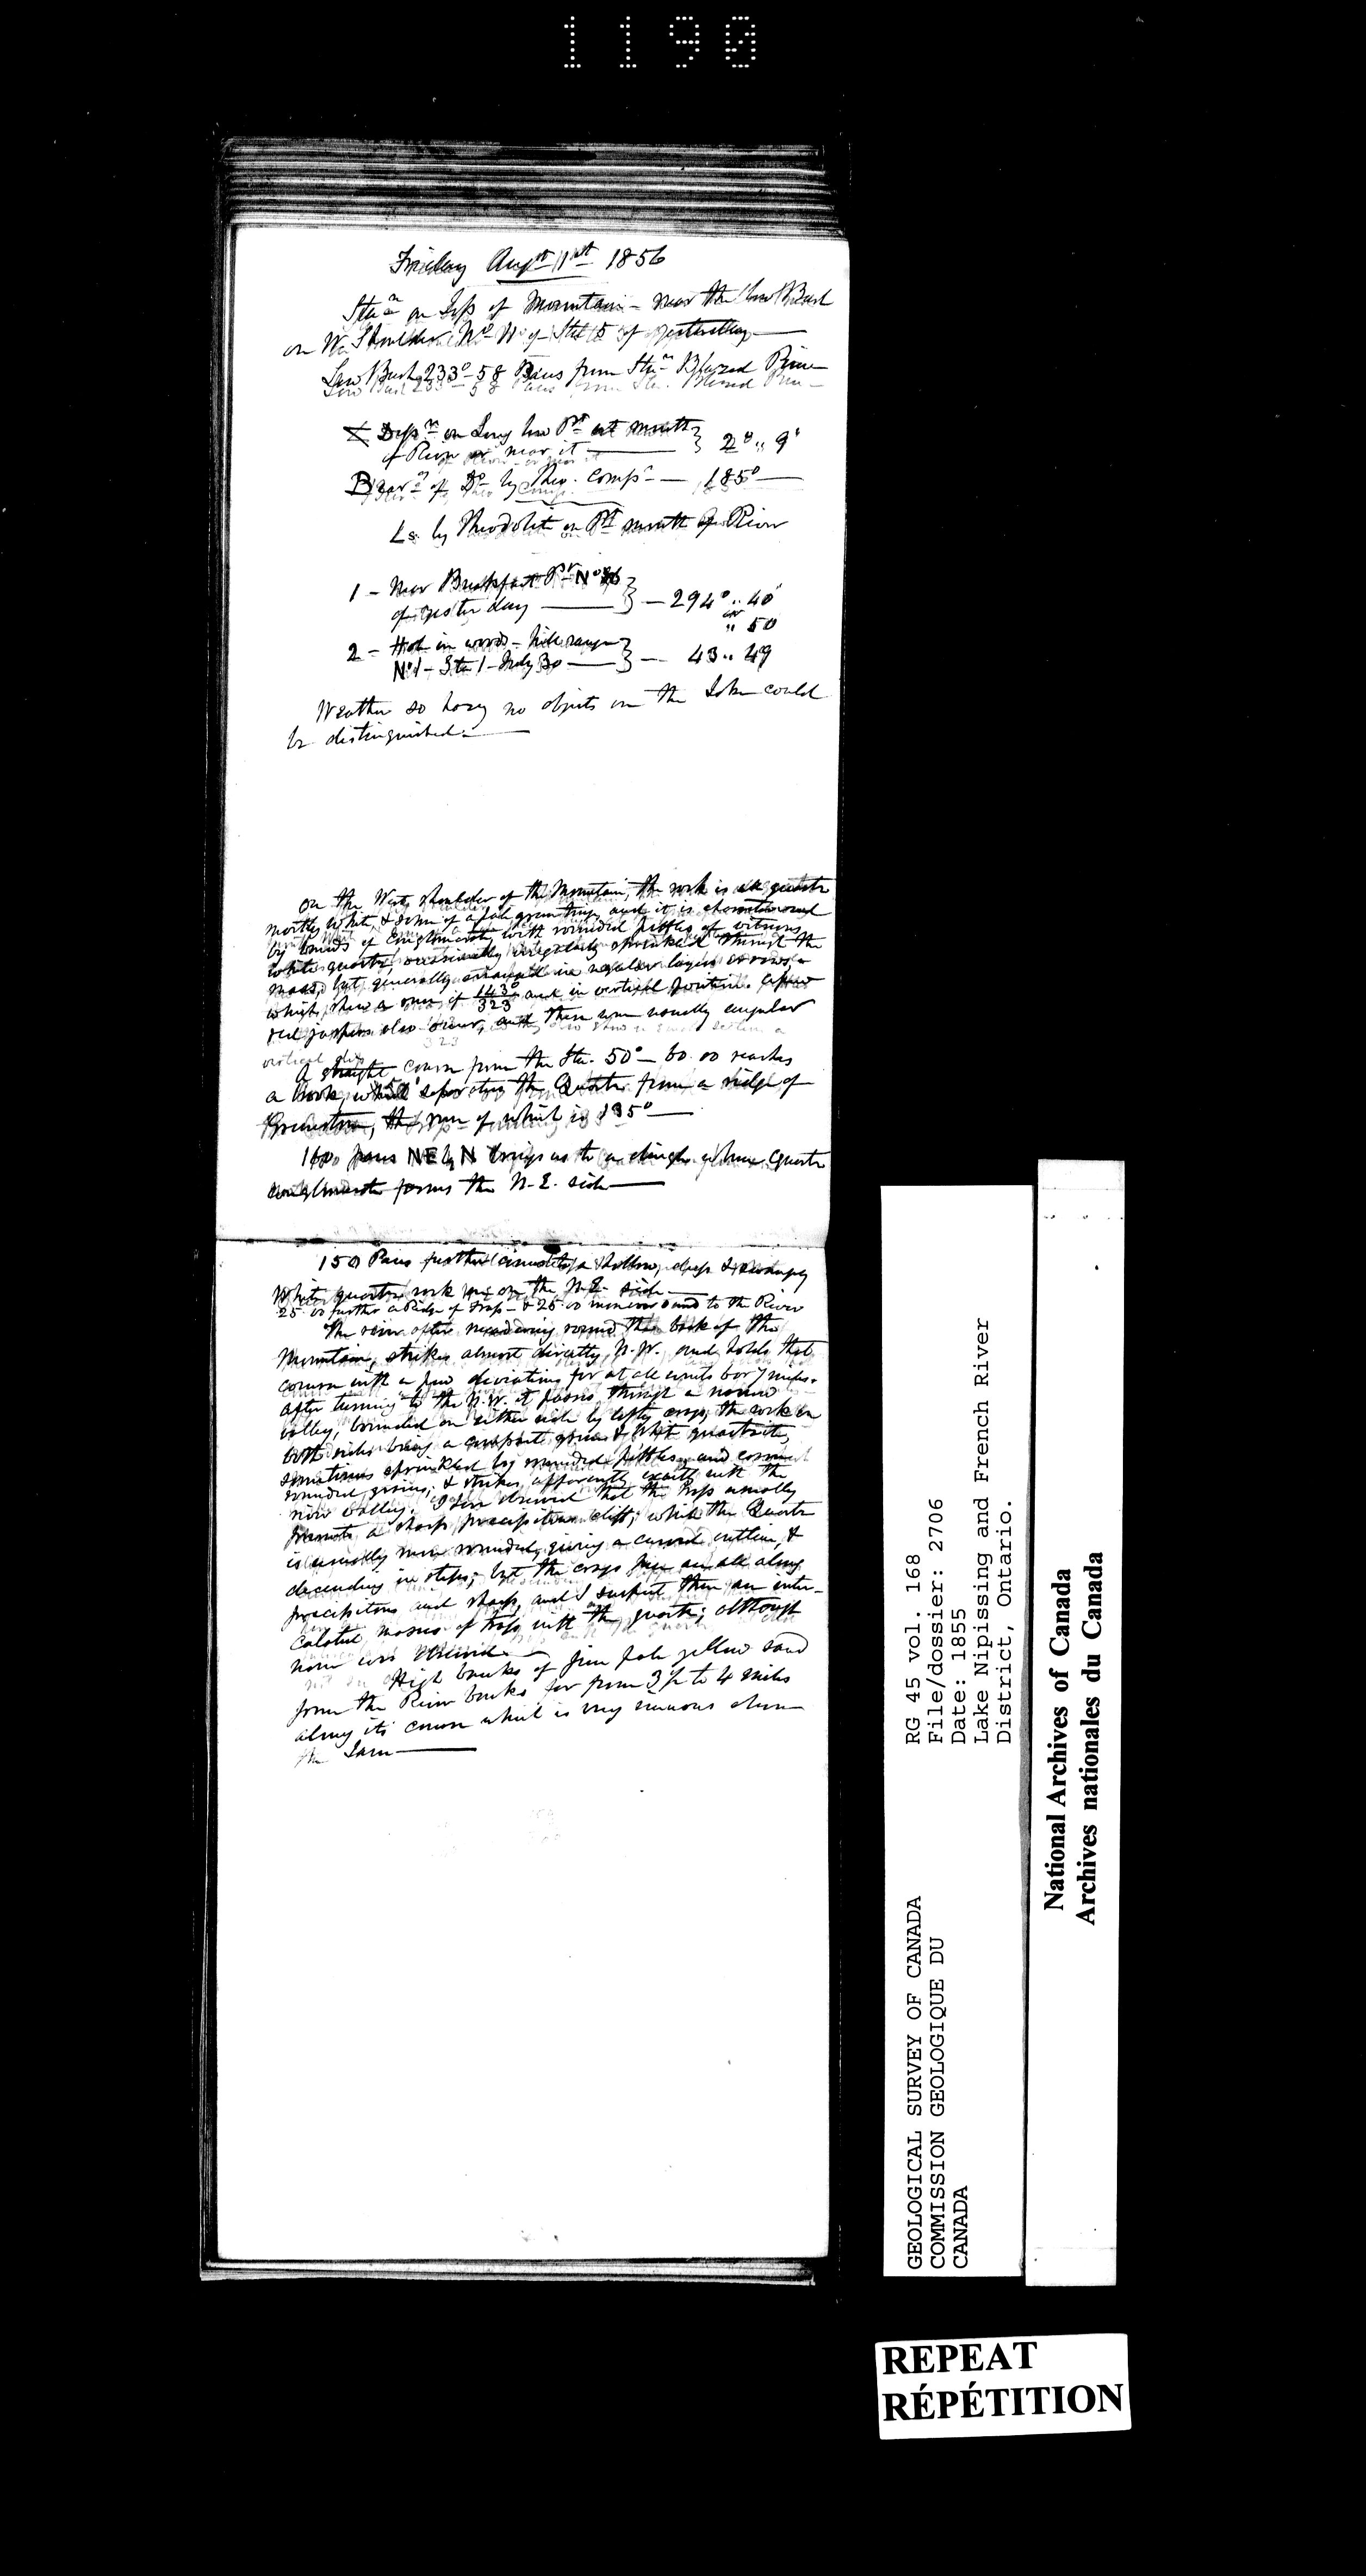 1190
Friday Augst 1st 1856
Stan on Top of Mountain - near the low Bush
on W. Shoulder Wd N of Stat 5 of yesterday
Low Bush 233° - 58 Paces from Stan Blazed Pine
Depn on Long low Pt at mouth
of River or near it 2°.. 9'
Bearg of Do by Theo. Compss - 185°
Ls by Theodolite on Pt mouth of River
1 - Near Breakfast Pt No 36
of yesterday - 294°.. 40'
or
" 50
2 - Hut in woods - hill range
No 1 - Sta 1 - July 30 - 43.. 49
Weather so hazy no objects on the Lake could
be distinguished.
On the West shoulder of the Mountain, the rock is quartz
mostly white, & some of a pale green tinge and it is
by bands of Conglomerate, with rounded pebbles of
white quartz, occasionally irregularly sprinkled through the
mass, but generally arranged in regular layers
which show a run of 143°/323 and in vertical position. A few
red jaspers also occur, and these were usually angular
vertical dip
A straight course from the Sta. 50° - 60.00 reaches
a brook, which separates the Quartz from a ridge of
Greenstone, the run of which is 135°
1600 paces NE by N brings us to a dingle where Quartz
conglomerate forms the N.E. side
150 Paces further to a hollow, deep & swampy
White quartz rock on the N.E. side
25.00 further a Ridge of Trap - & 25.00 to the River
The river after meandering round the back of the
Mountain, strikes almost directly N.W. and holds that
course with a few deviations for at all events 6 or 7 miles.
After turning to the N.W. it passes through a narrow
valley, bounded on either side by lofty crags, the rock on
both sides being a compact & white quartzite,
sometimes sprinkled by rounded pebbles and
rounded grains, & strikes apparently exactly with the
river valley. I have observed that the Trap usually
presents a sharp precipitous cliff, while the Quartz
is usually more rounded, giving a curved outline, &
descending in steps; but the crags here are all along
precipitous and sharp, and I suspect there are inter-
calated masses of trap with the quartz; although
none was observed.
High banks of fine pale yellow sand
form the River banks for from 3½ to 4 miles
along its course which is very sinuous above
the Jam
RG 45 vol. 168
File/dossier: 2706
Date: 1855
Lake Nipissing and French River
District, Ontario.
GEOLOGICAL SURVEY OF CANADA
COMMISSION GEOLOGIQUE DU
CANADA
National Archives of Canada
Archives nationales du Canada
REPEAT
RÉPÉTITION